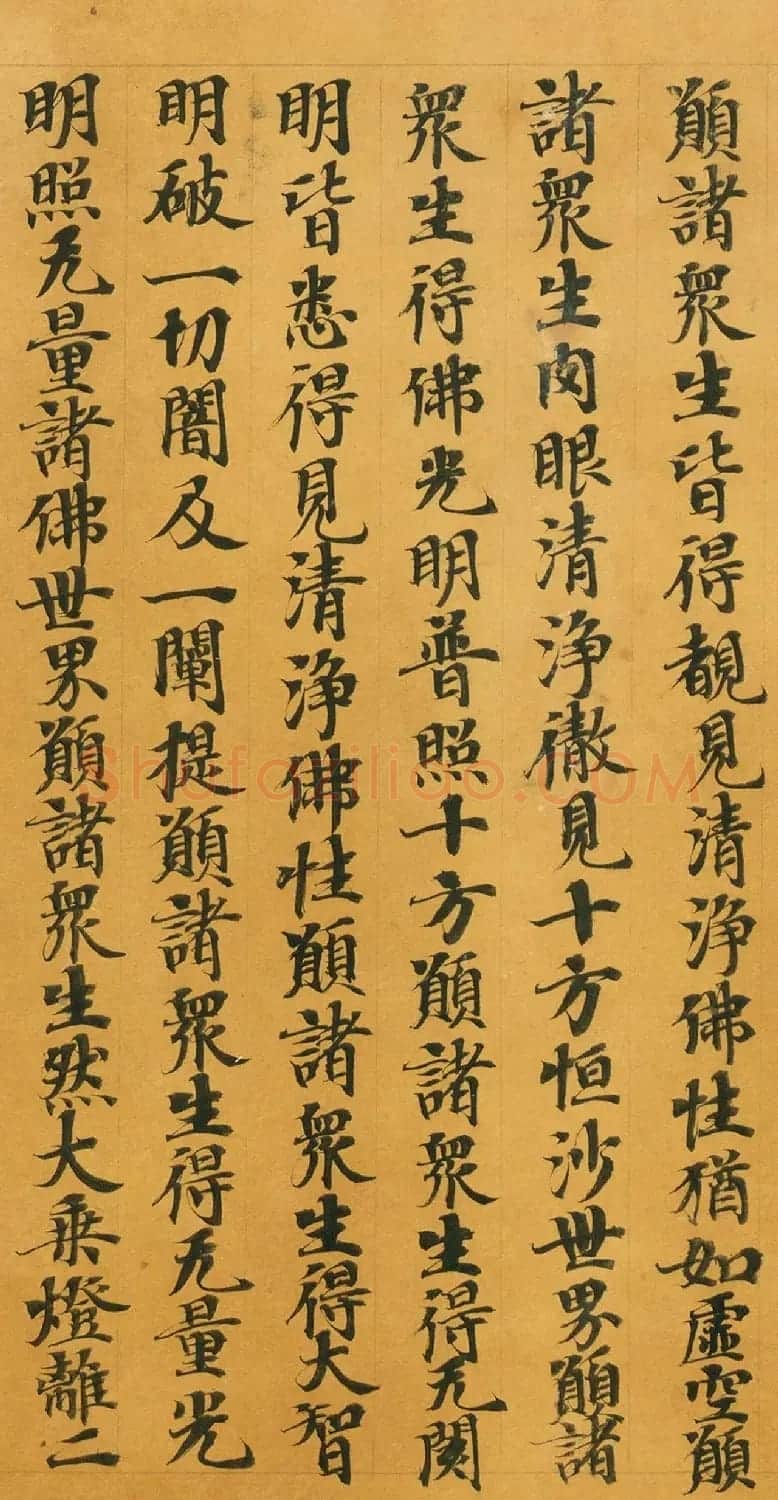 願諸眾生皆得覩見清浄佛性猶如虛空願
諸眾生肉眼清浄徹見十方恒沙世界願諸
眾生得佛光明普照十方願諸眾生得无閡
明皆悉得見清浄佛性願諸眾生得大智
明破一切闇及一闡提願諸眾生得无量光
明照无量諸佛世界願諸眾生然大乗燈離二
Shufaziliao.COM